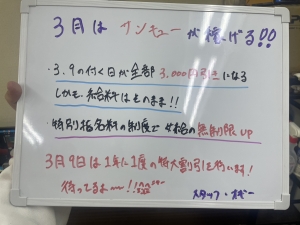 3月は サンキューが稼げる!!
・3.9の付く日が全部 3.000円引きになる
しかも、給料はそのまま!!
・特別指名料の制度で 女給の無制限UP
3月9日は1年に1度の特大割引を行います!
待ってるよ〜!!
スタッフ・